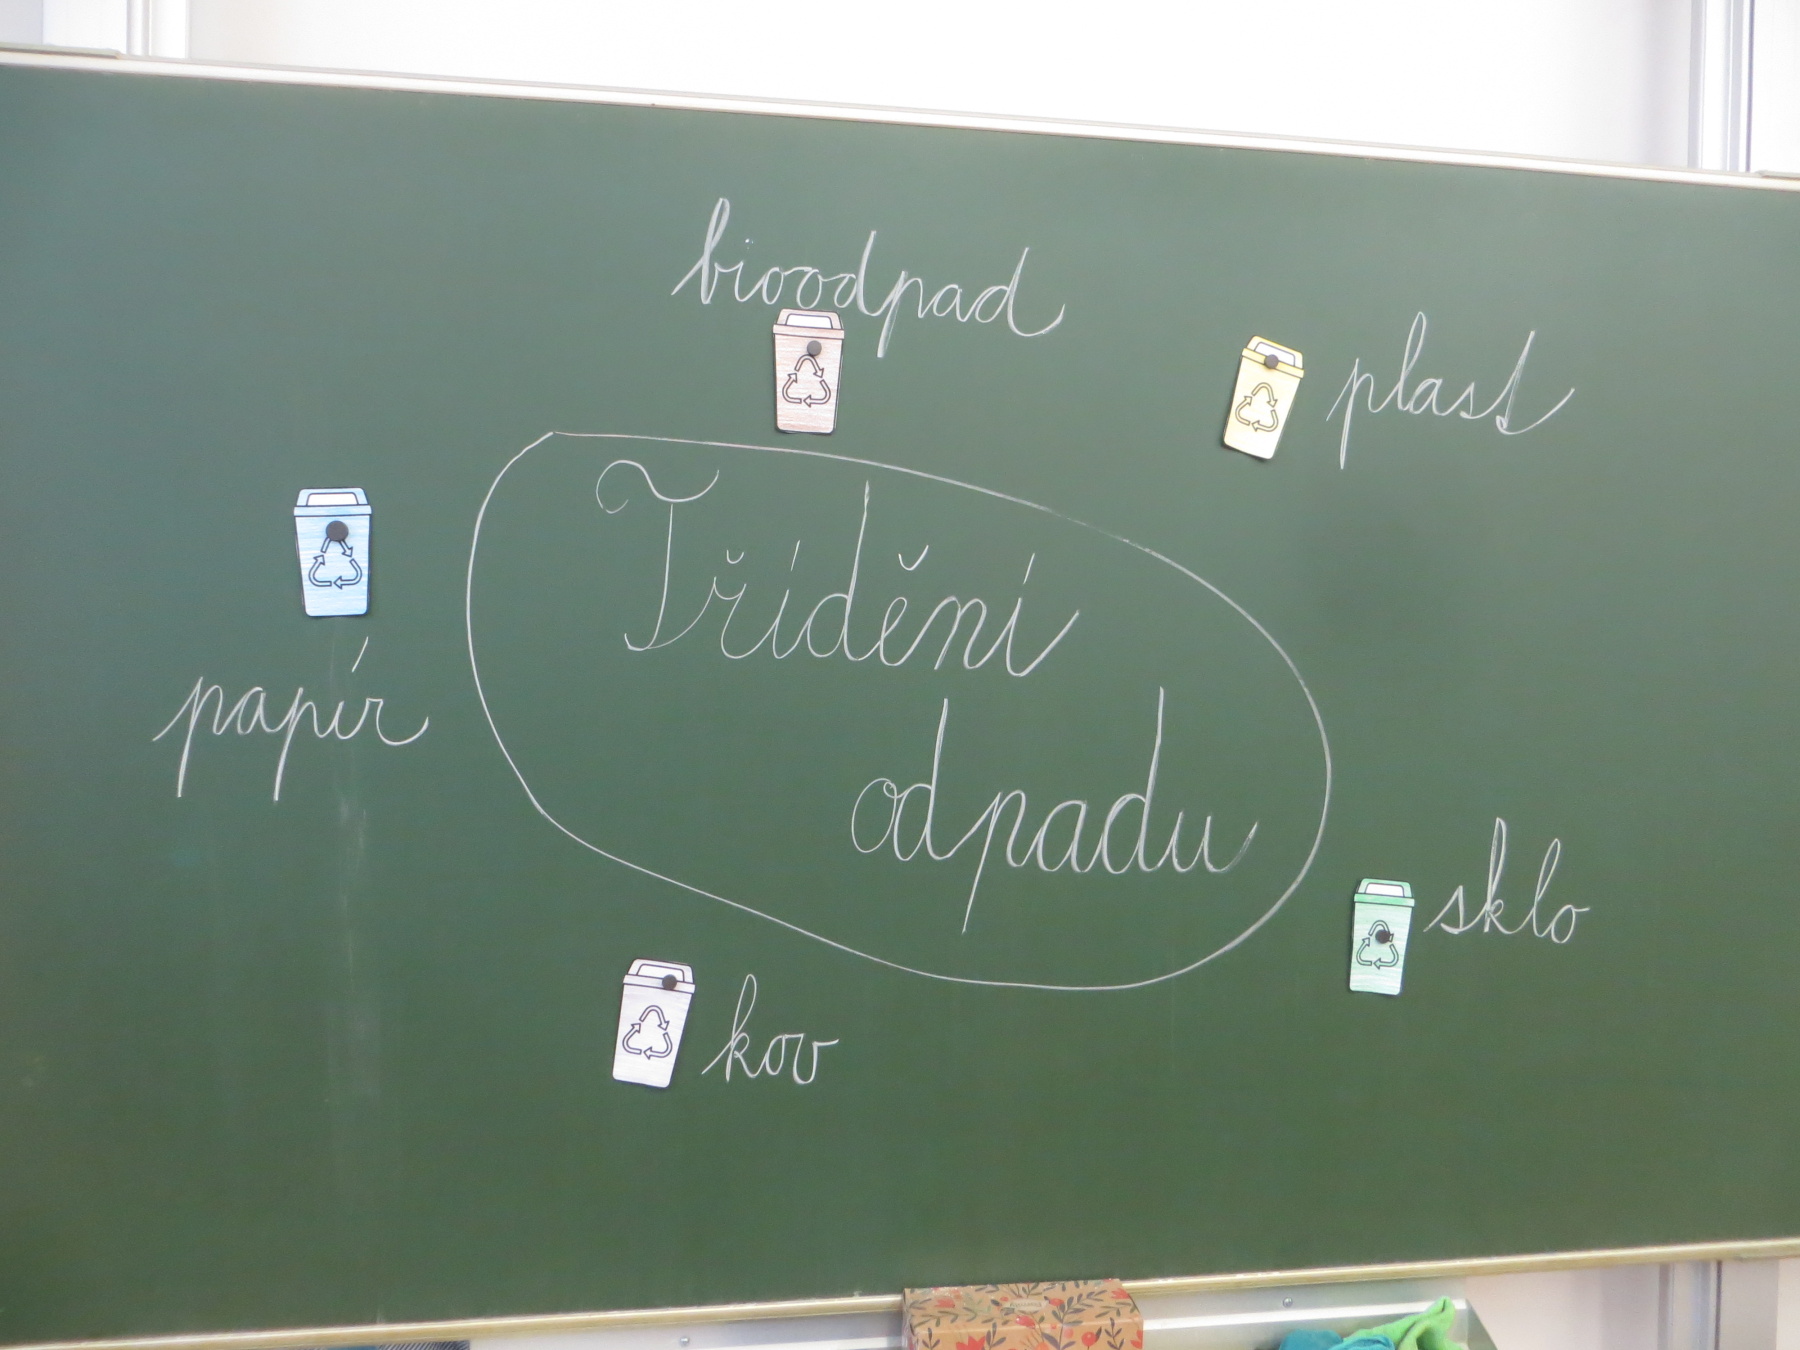 bioodpad
plast
Třídění
odpadu
papír
sklo
kov